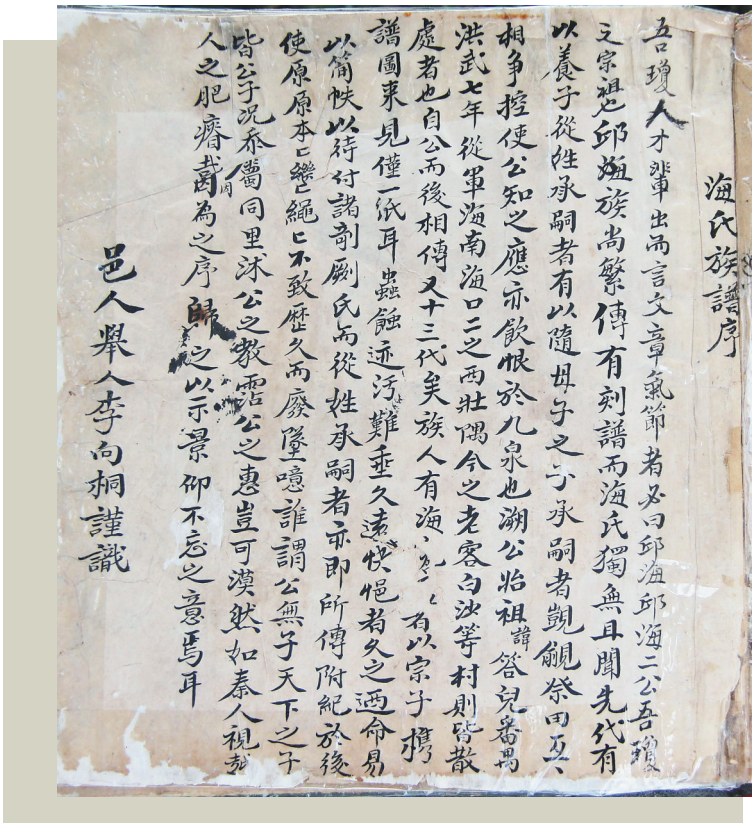 海氏族譜序
吾瓊人才輩出而言文章氣節者必曰邱海邱海二公吾瓊
文宗祖也邱海族尚繁傳有刻譜而海氏獨無且聞先代有
以養子從姓承嗣者有以隨母子之子承嗣者覬覦祭田互
相爭控使公知之應亦飲恨於九泉也溯公始祖諱答兒番禺
洪武七年從軍海南海口二之西壯隅今之老客白沙等村則皆散
處者也自公而後相傳又十三代矣族人有海、者以宗子攜
譜圖來見僅一紙耳蟲蝕迹污難垂久遠快悒者久之迺命易
以簡帙以待付諸剞劂氏而從姓承嗣者亦即所傳附紀於後
使原原本匕繼匕繩匕不致歷久而廢墜噫誰謂公無子天下之子
皆公子況忝屬同里沐公之教霑公之惠豈可漠然如秦人視越
人之肥瘠哉因為之序歸之以示景仰不忘之意焉耳
邑人舉人李向桐謹識